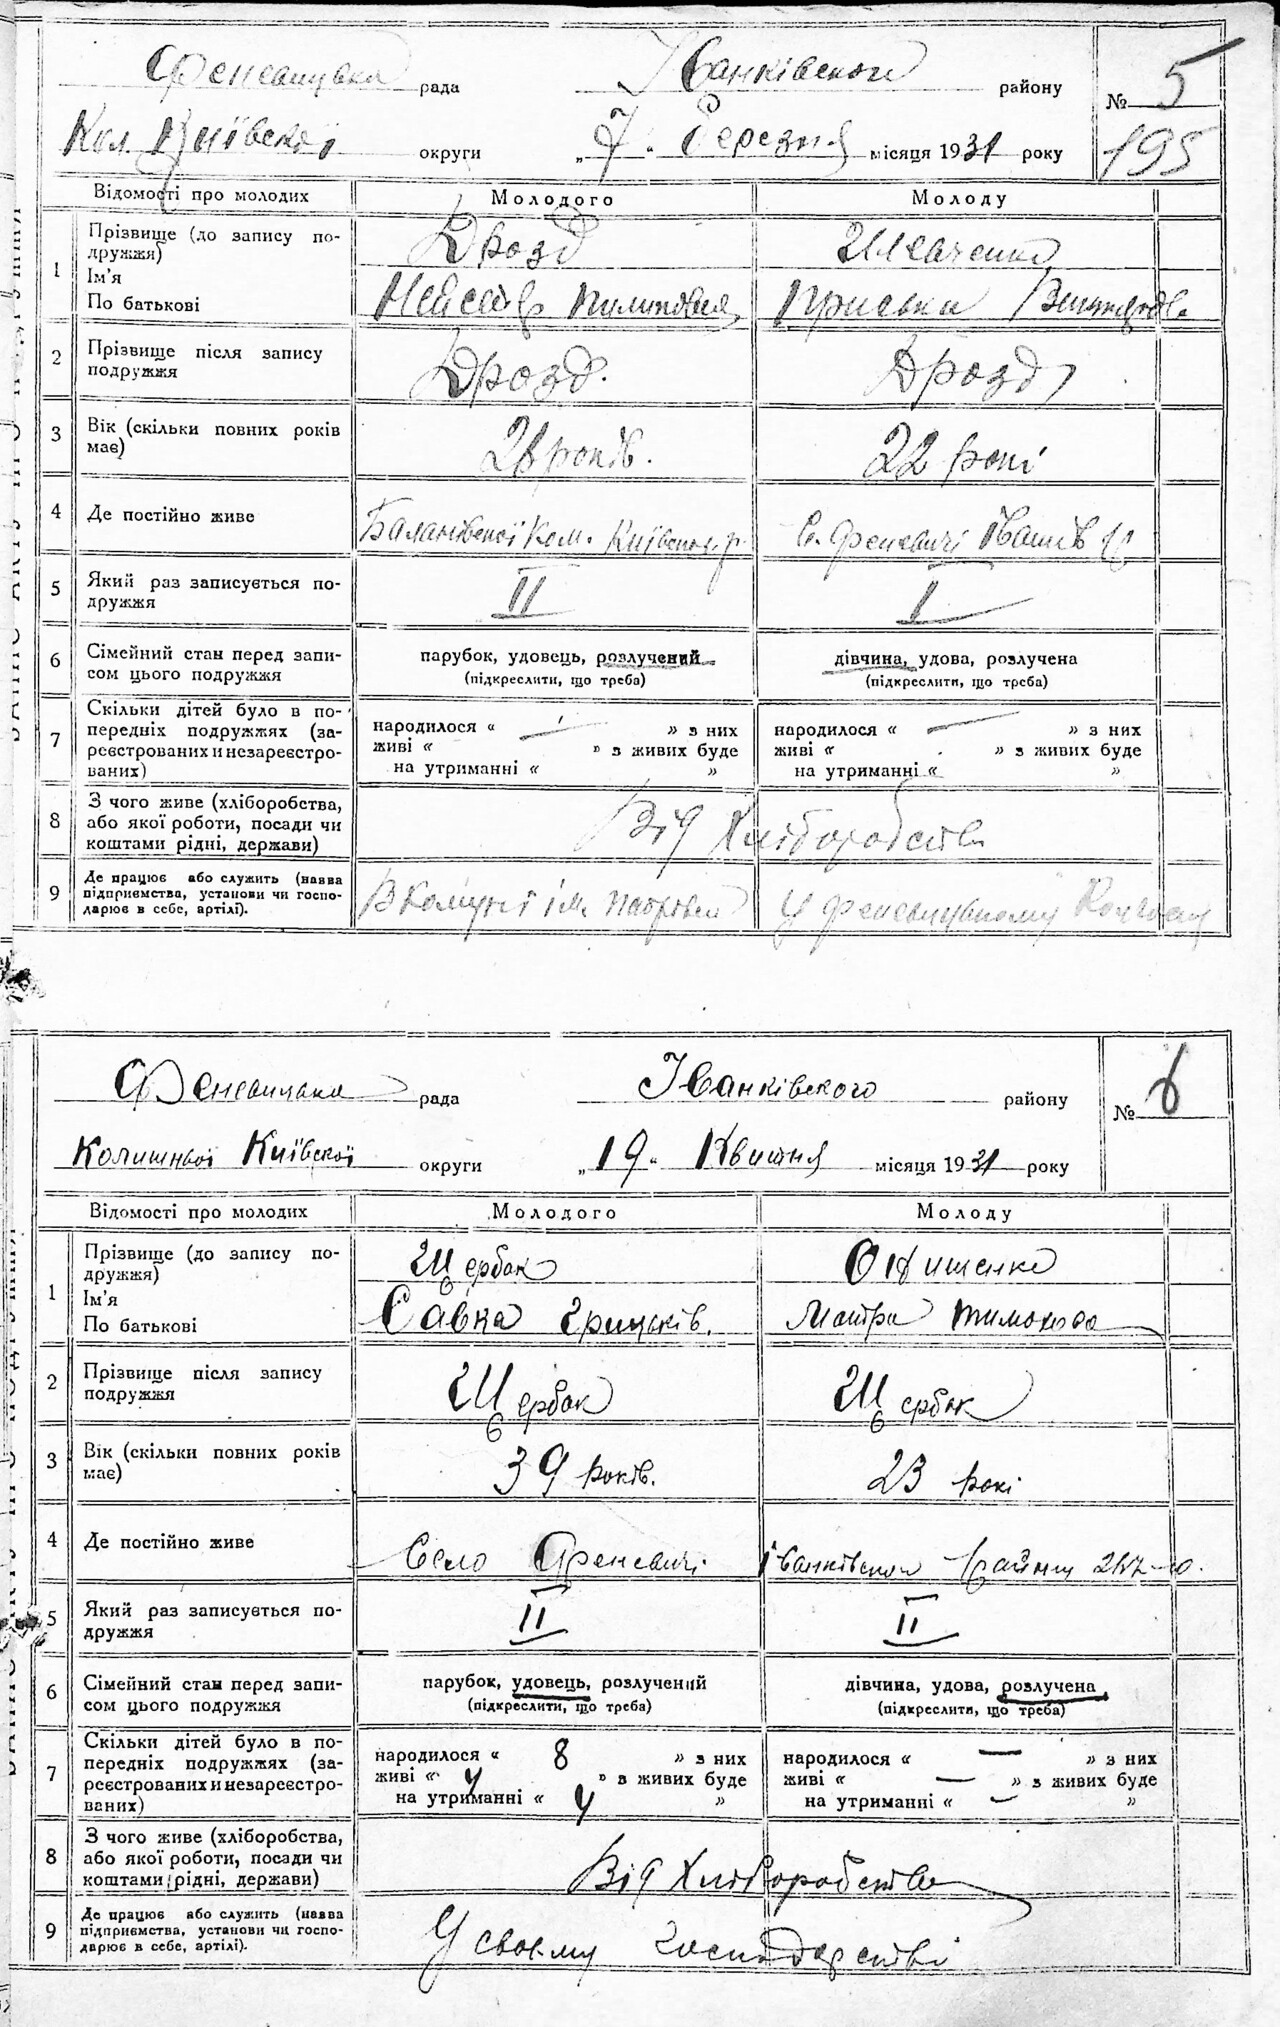 Феневицька рада Іванківского району № 5
Кол. Київскої округи „7“ березня місяця 1931 року 195
Відомості про молодих Молодого Молоду
1 Прізвище (до запису по-
дружжя) Дрозд
Ім'я
По батькові Пилипович Приська
2 Прізвище після запису
подружжя Дрозд. Дрозд
3 Вік (скільки повних років
має) років. 22 рокі
4 Де постійно живе Ком. Київськог. р. с. Феневичі Іванків
5 Який раз записується по-
дружжя II I
6 Сімейний стан перед запи-
сом цього подружжя парубок, удовець, розлучений дівчина, удова, розлучена
(підкреслити, що треба) (підкреслити, що треба)
7 Скільки дітей було в по-
передніх подружжях (за-
реєстрованих и незареєстро-
ваних) народилося « — » з них народилося « — » з них
живі « » з живих буде живі « » з живих буде
на утриманні « » на утриманні « »
8 З чого живе (хліборобства,
або якої роботи, посади чи
коштами рідні, держави) Від Хліборобства
9 Де працює або служить (назва
підприємства, установи чи госпо-
дарює в себе, артілі). В комуні ім. У Феневицькому Колгоспі
Феневицька рада Іванківского району № 6
Колишньої Київскої округи „19“ Квітня місяця 1931 року
Відомості про молодих Молодого Молоду
1 Прізвище (до запису по-
дружжя) Щербак Онищенко
Ім'я
По батькові Савка Грицьків. Мотря Тимохова
2 Прізвище після запису
подружжя Щербак Щербак
3 Вік (скільки повних років
має) 39 років. 23 рокі
4 Де постійно живе Село Феневичі Іванківского Району
5 Який раз записується по-
дружжя II II
6 Сімейний стан перед запи-
сом цього подружжя парубок, удовець, розлучений дівчина, удова, розлучена
(підкреслити, що треба) (підкреслити, що треба)
7 Скільки дітей було в по-
передніх подружжях (за-
реєстрованих и незареєстро-
ваних) народилося « 8 » з них народилося « — » з них
живі « 4 » з живих буде живі « — » з живих буде
на утриманні « 4 » на утриманні « — »
8 З чого живе (хліборобства,
або якої роботи, посади чи
коштами рідні, держави) Від Хліборобства
9 Де працює або служить (назва
підприємства, установи чи госпо-
дарює в себе, артілі). У своєму господарстві